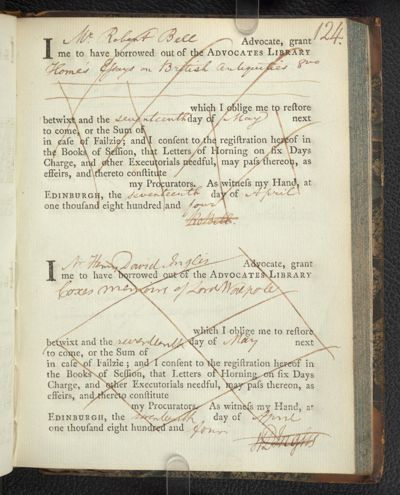 124.
I Mr Robert Bell Advocate, grant
me to have borrowed out of the ADVOCATES LIBRARY
Home's Essays on British Antiquities 8vo
which I oblige me to restore
betwixt and the seventeenth day of May next
to come, or the Sum of
in case of Failzie; and I consent to the registration hereof in
the Books of Session, that Letters of Horning on six Days
Charge, and other Executorials needful, may pass thereon, as
effeirs, and thereto constitute
my Procurators. As witness my Hand, at
EDINBURGH, the seventeenth day of April
one thousand eight hundred and four
Ro Bell.
I Mr Henry David Inglis Advocate, grant
me to have borrowed out of the ADVOCATES LIBRARY
Coxes memoirs of Lord Walpole
which I oblige me to restore
betwixt and the seventeenth day of May next
to come, or the Sum of
in case of Failzie; and I consent to the registration hereof in
the Books of Session, that Letters of Horning on six Days
Charge, and other Executorials needful, may pass thereon, as
effeirs, and thereto constitute
my Procurators. As witness my Hand, at
EDINBURGH, the seventeenth day of April
one thousand eight hundred and four
HD Inglis